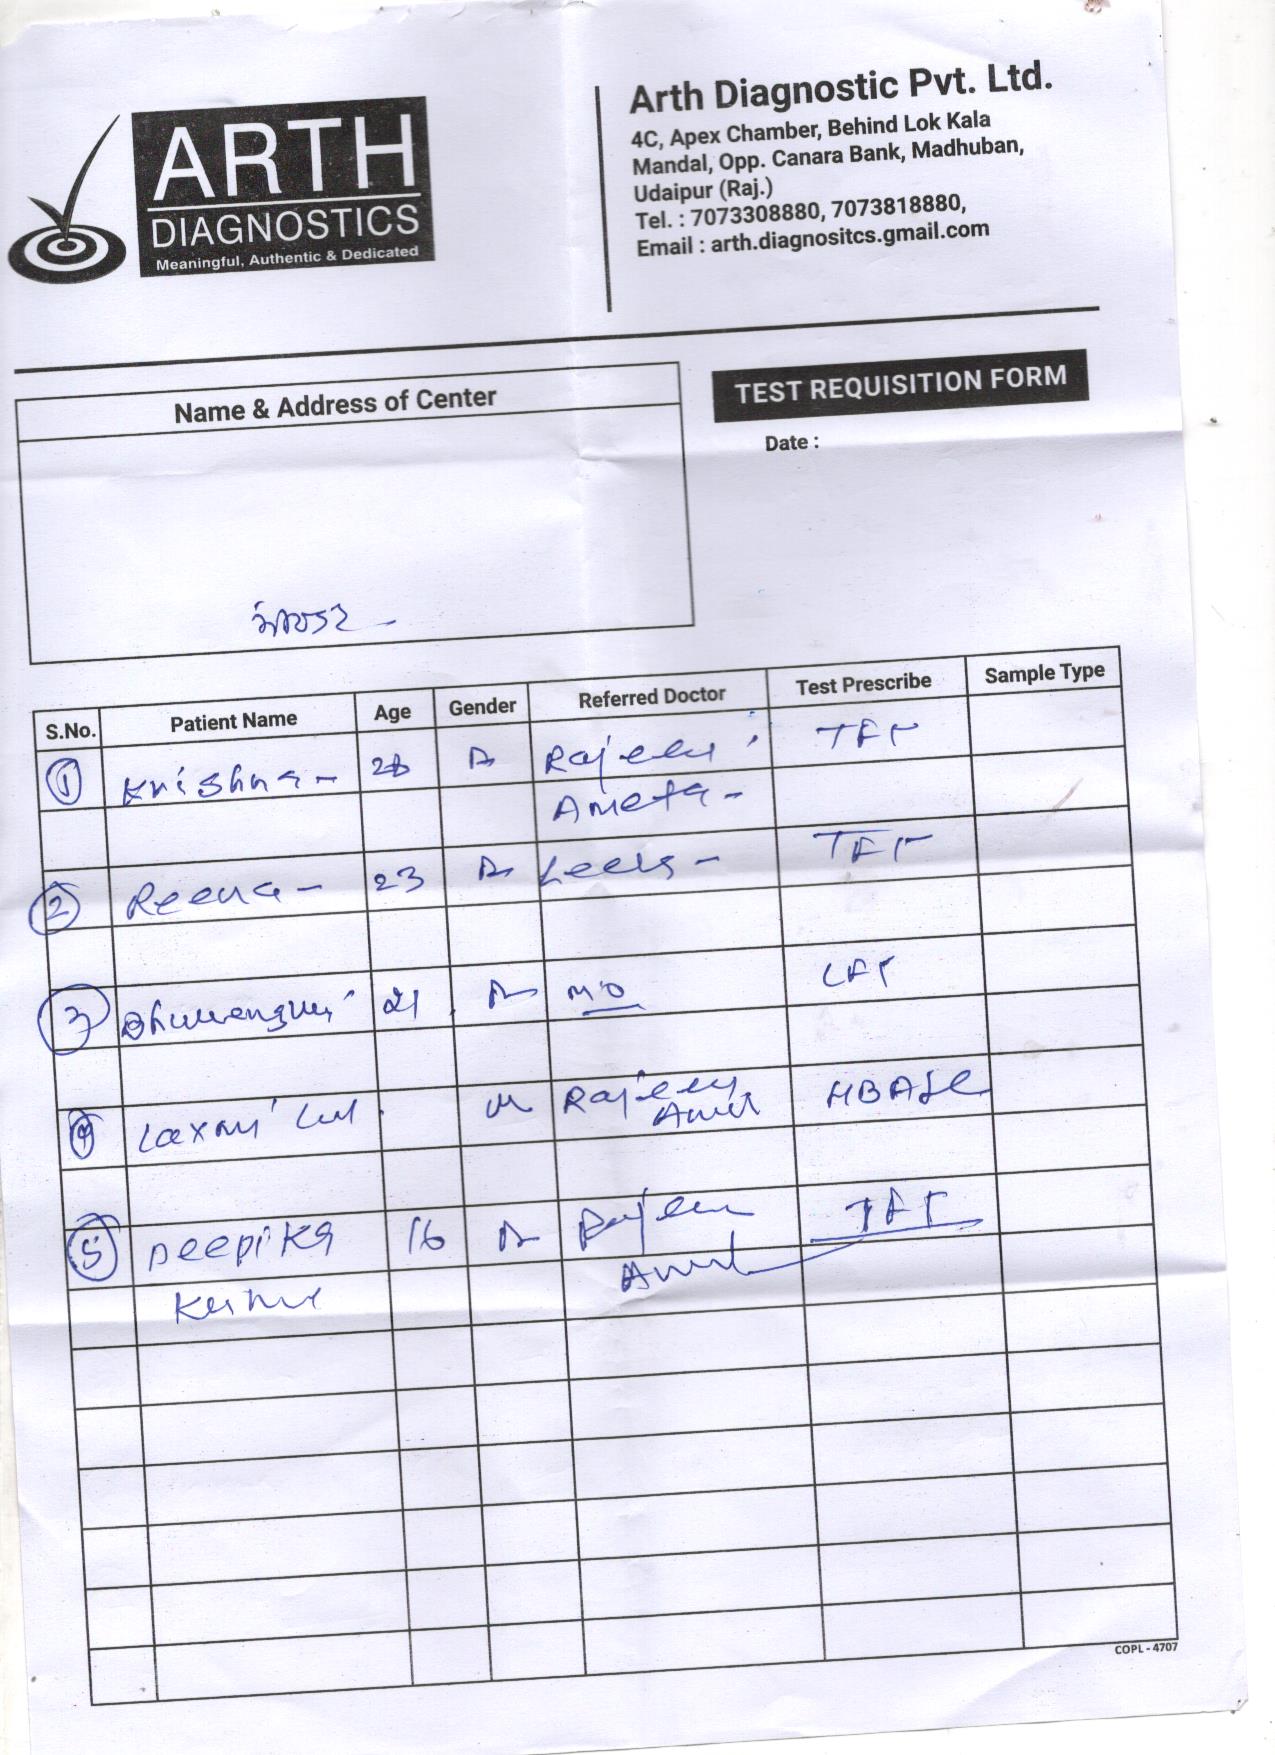 ARTH
DIAGNOSTICS
Meaningful, Authentic & Dedicated
Arth Diagnostic Pvt. Ltd.
4C, Apex Chamber, Behind Lok Kala
Mandal, Opp. Canara Bank, Madhuban,
Udaipur (Raj.)
Tel. : 7073308880, 7073818880,
Email : arth.diagnositcs.gmail.com
Name & Address of Center
TEST REQUISITION FORM
Date :
S.No. Patient Name Age Gender Referred Doctor Test Prescribe Sample Type
1 Krishna - 28 Rajeev TFT
Ameta -
2 Reena - 23 TFT
3 21 MO LFT
4 Laxmi Lal M Rajeev HBA1C
5 Deepika 16 Rajeev TFT
COPL - 4707